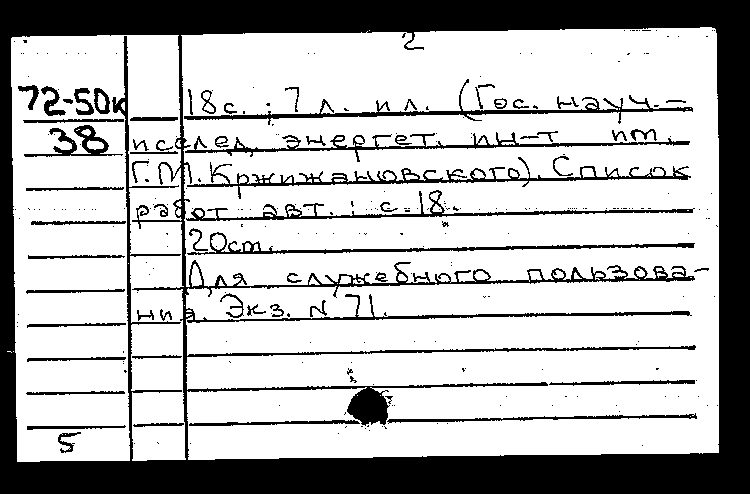 2
72-50к 18с. ; 7 л. ил. (Гос. науч.-
38 исслед. энергет. ин-т им.
Г.М. Кржижановского). Список
работ авт.: с. 18.
20см.
Для служебного пользова-
ния. Экз. N 71.
5